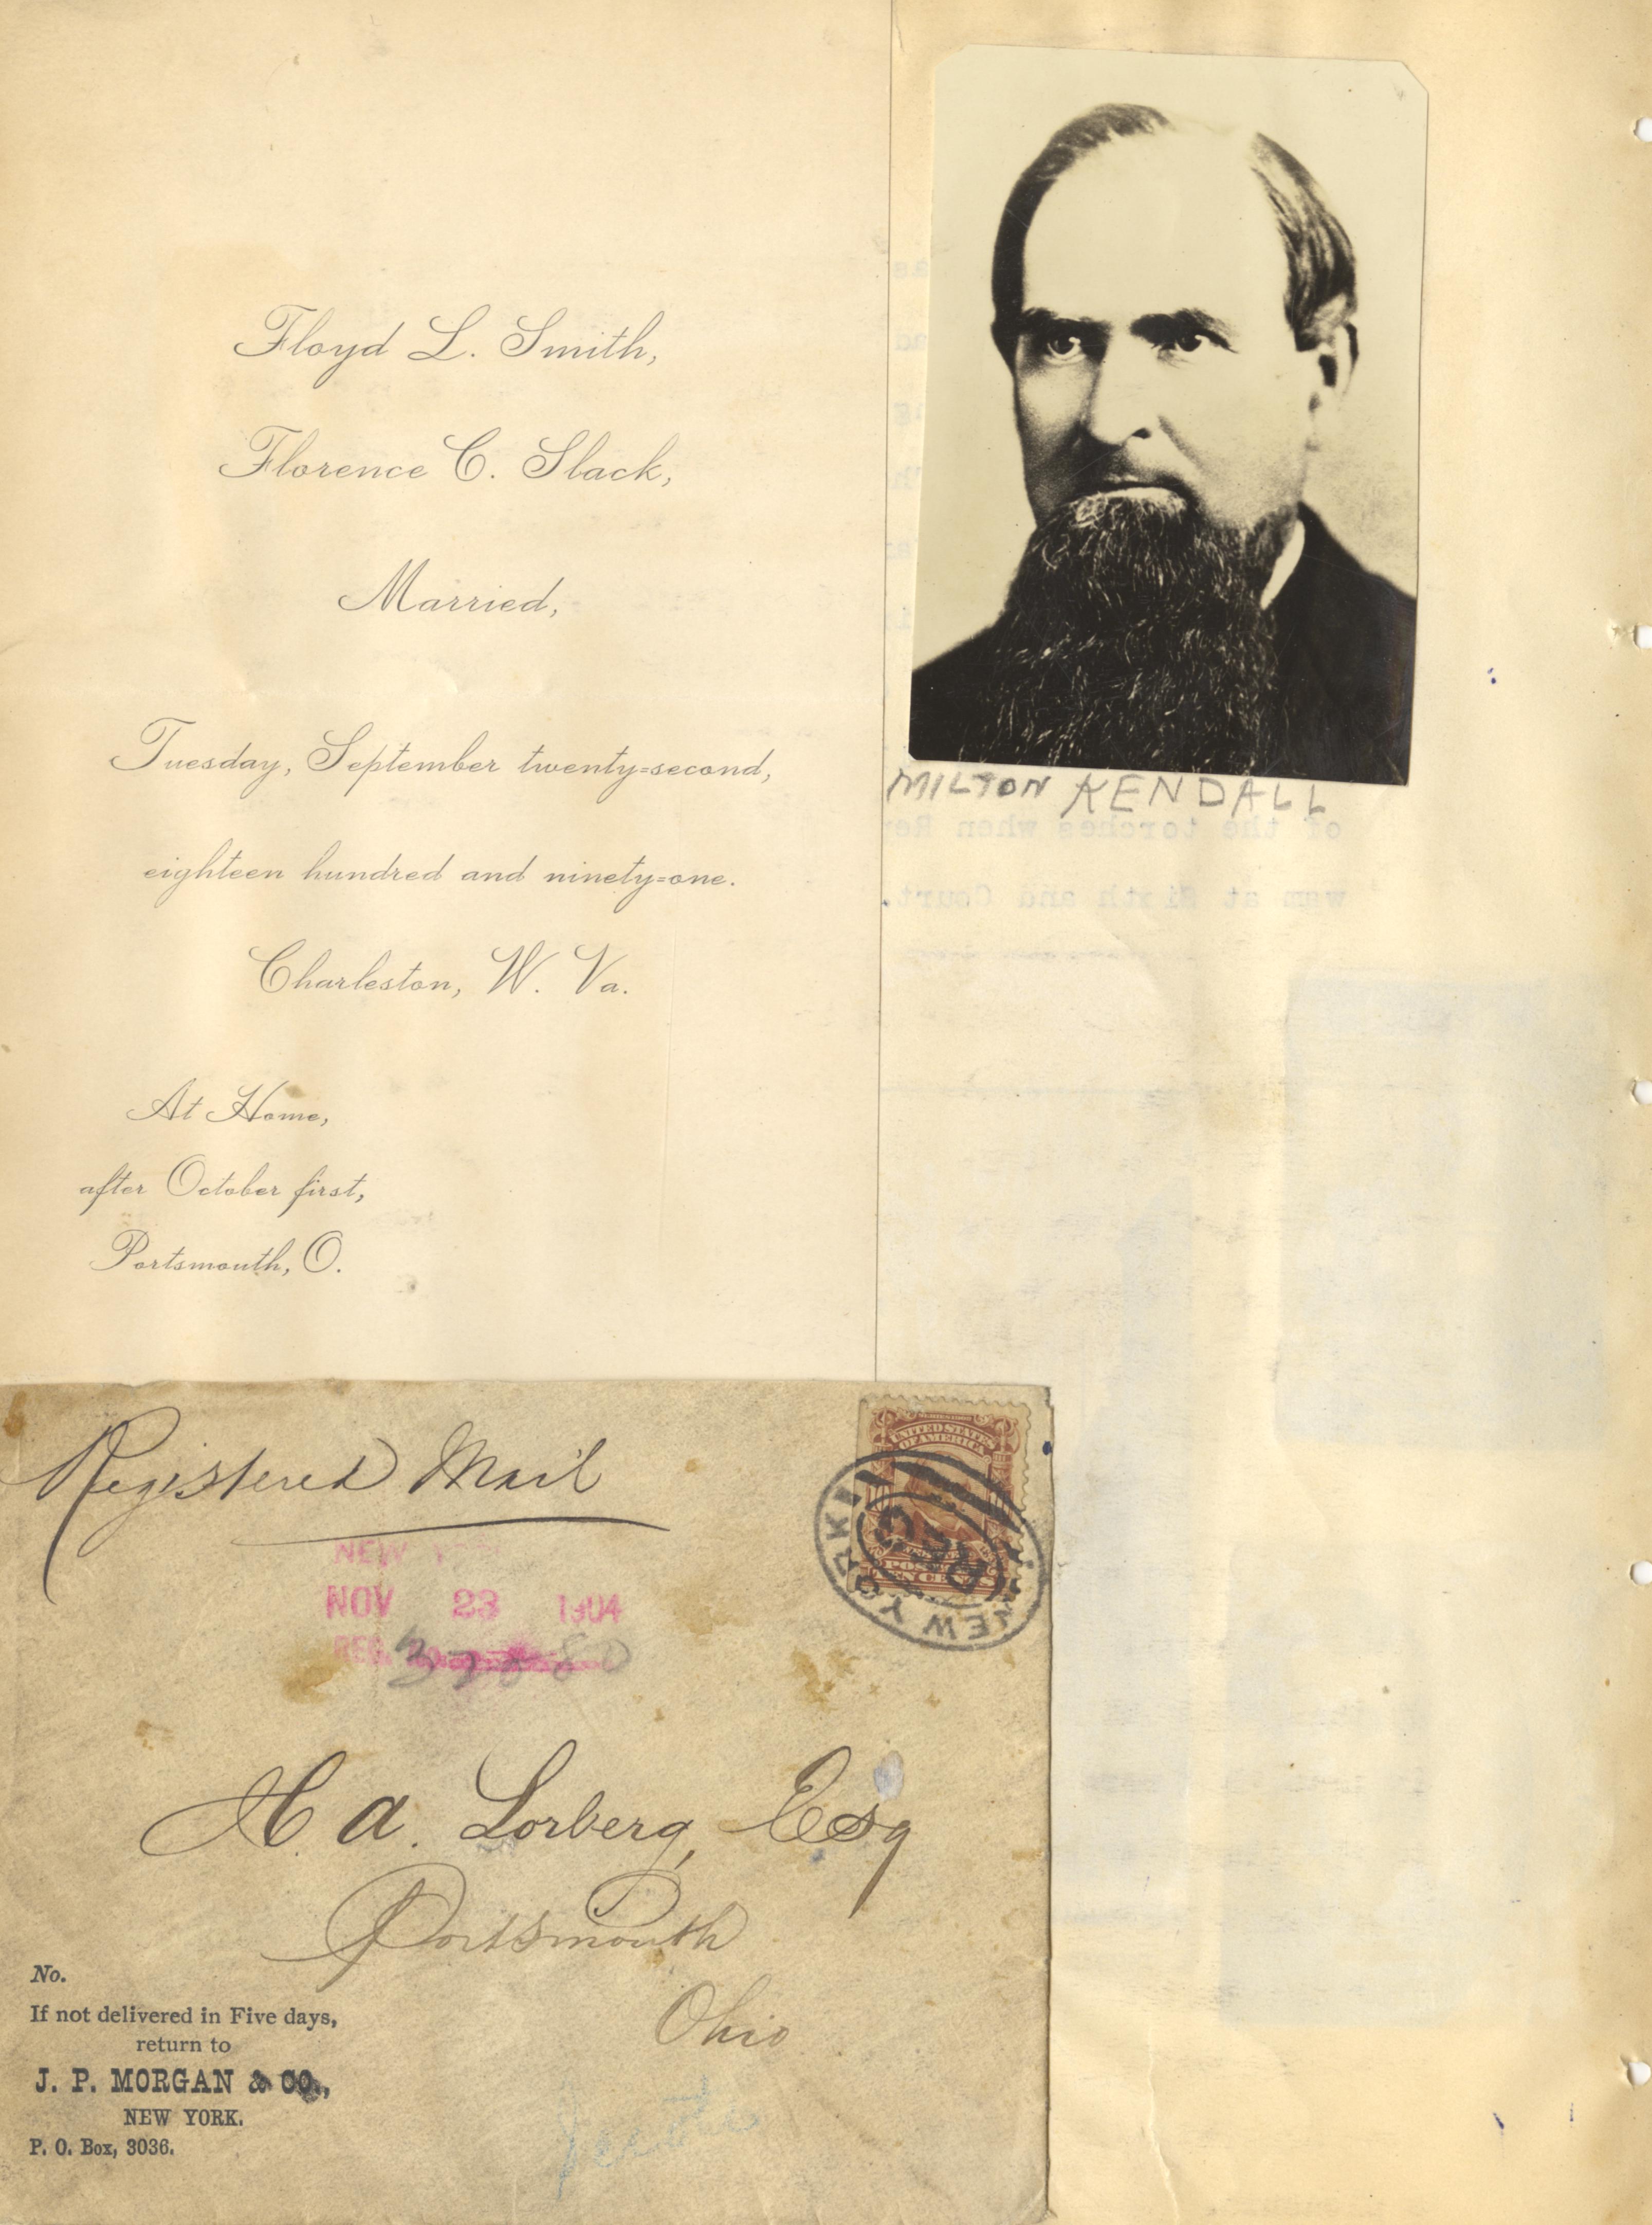 Floyd L. Smith,
Florence C. Slack,
Married,
Tuesday, September twenty=second,
eighteen hundred and ninety=one.
Charleston, W. Va.
At Home,
after October first,
Portsmouth, O.
MILTON KENDALL
of the torches when
was at Sixth and Court.
Registered Mail
SERIES 1902
UNITED STATES
OF AMERICA
NEW YORK
NEW
NOV 23 1904
REG.
H. A. Lorberg, Esq
Portsmouth
Ohio
No.
If not delivered in Five days,
return to
J. P. MORGAN & CO.,
NEW YORK.
P. O. Box, 3036.